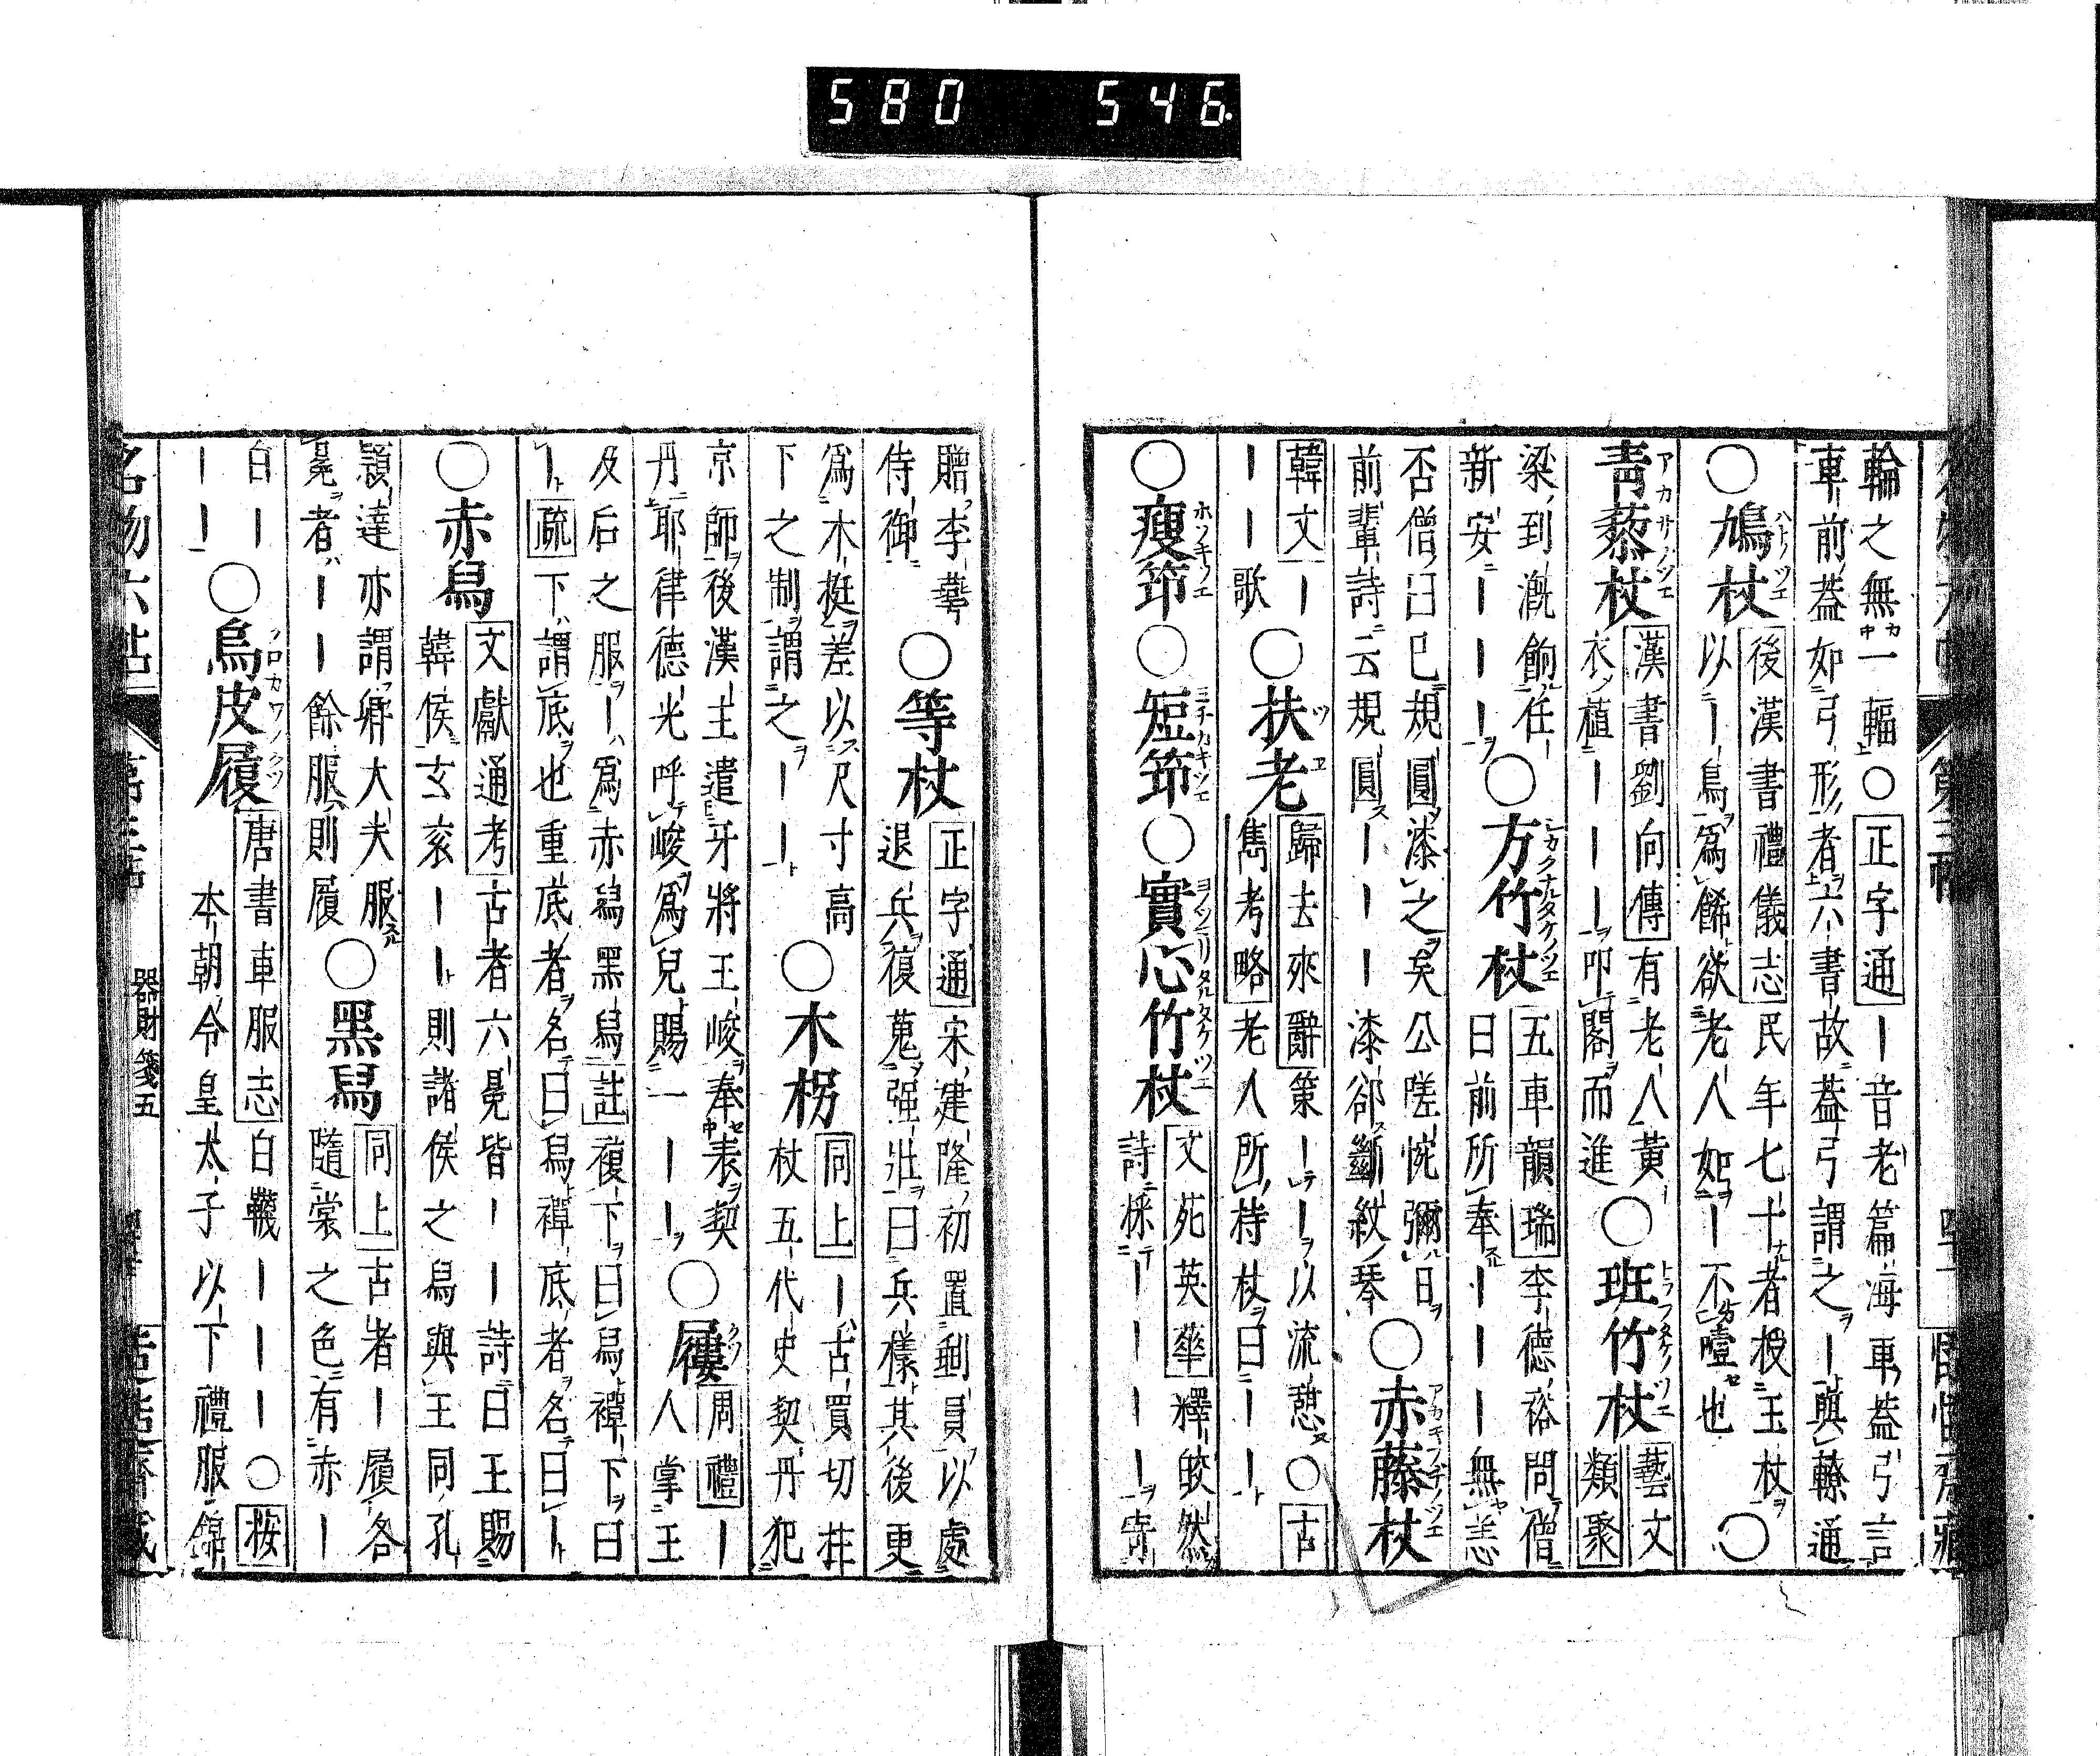 580 546
輪之無一輻○正字通｜音老篇海車蓋弓言
車前蓋如弓形者六書故蓋弓謂之｜與轑通
○鳩杖 後漢書禮儀志民年七十者授玉杖
以｜鳥爲餙欲老人如｜不噎也 ○
靑藜杖 漢書劉向傳有老人黃
衣植｜｜｜叩閣而進 ○班竹杖 藝文
類聚
梁到漑餉任
新安｜｜｜ ○方竹杖 五車韻瑞李德裕問僧
曰前所奉｜｜｜無恙
否僧曰已規圓漆之矣公嗟惋彌日
前輩詩云規圓｜｜｜漆卻斷紋琴 ○赤藤杖
韓文｜
｜｜歌 ○扶老 歸去來辭策｜｜以流憩○古
雋考略老人所持杖曰｜｜
○瘦笻 ○短笻 ○實心竹杖 文苑英華釋皎然
詩採｜｜｜｜寄
贈李蕚
侍御 ○等杖 正字通宋建隆初置剩員以處
退兵復蒐强壯曰兵樣其後更
爲木挺差以尺寸高
下之制謂之｜｜ ○木柺 同上｜古買切拄
杖五代史契丹犯
京師後漢王遣牙將王峻奉表契
丹耶律德光呼峻爲兒賜一｜｜ ○屨 周禮｜
人掌王
及后之服｜爲赤舃黑舃註複下曰舃襌下曰
｜疏下謂底也重底者名曰舃襌底者名曰｜
○赤舃 文獻通考古者六冕皆｜｜詩曰王賜
韓侯玄衮｜｜則諸侯之舃與王同孔
頴達亦謂卿大夫服
冕者｜｜餘服則履 ○黑舃 同上古者｜履各
隨裳之色有赤｜
白｜
｜｜ ○烏皮履 唐書車服志白韈｜｜｜○按
本朝令皇太子以下禮服錦
名物六帖 第三帖 器財箋五